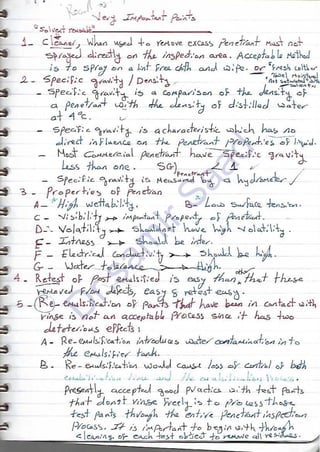 Very Important Points
"Solvent removable"
1- Cleaner, When used to remove excess Penetrant must not
sprayed directly on the inspection area. Acceptable Method
is to spray on a lint free cloth and wipe. or "Fresh cloth or
Towel moistened
Not saturated with
solvent
2 - Specific gravity / Density
- Specific gravity is a comparison of the density of
a penetrant with the density of distilled water
at 4°C.
- Specific gravity is a characteristic which has no
direct influence on the penetrant properties of liquid.
- Most Commercial penetrant have specific gravity
Less than one. SG) < 1
- Specific gravity is Measured by a hydrometer
Penetrant
3 - Properties of Penetran
A- High wettability. B- Low Surface tension.
C- Visibility → important Property of Penetrant.
D- Volatility → Should not have high Volatility.
E- Intness → Should be inter.
F- Electrical Conductivity → Should be high.
G- Water tolerance → High.
4- Retest of Post emulsified is easy than other that these
removed from defects, easy & retest easy.
5- (Re-emulsification of Parts that have been in contact with
rinse is not an acceptable Process since it has two
deteterious effects:
A- Re-emulsification introduces water contamination into
the emulsifier tank.
B. Re-emulsification would cause loss of control of both
emulsification time and the emulsification Process.
Presently accepted good Practice with test Parts
that don't rinse freely is to Process those
test Parts through the entire Penetrant inspection
Process. It is important to begin with through
cleaning of each test object to remove all residues.